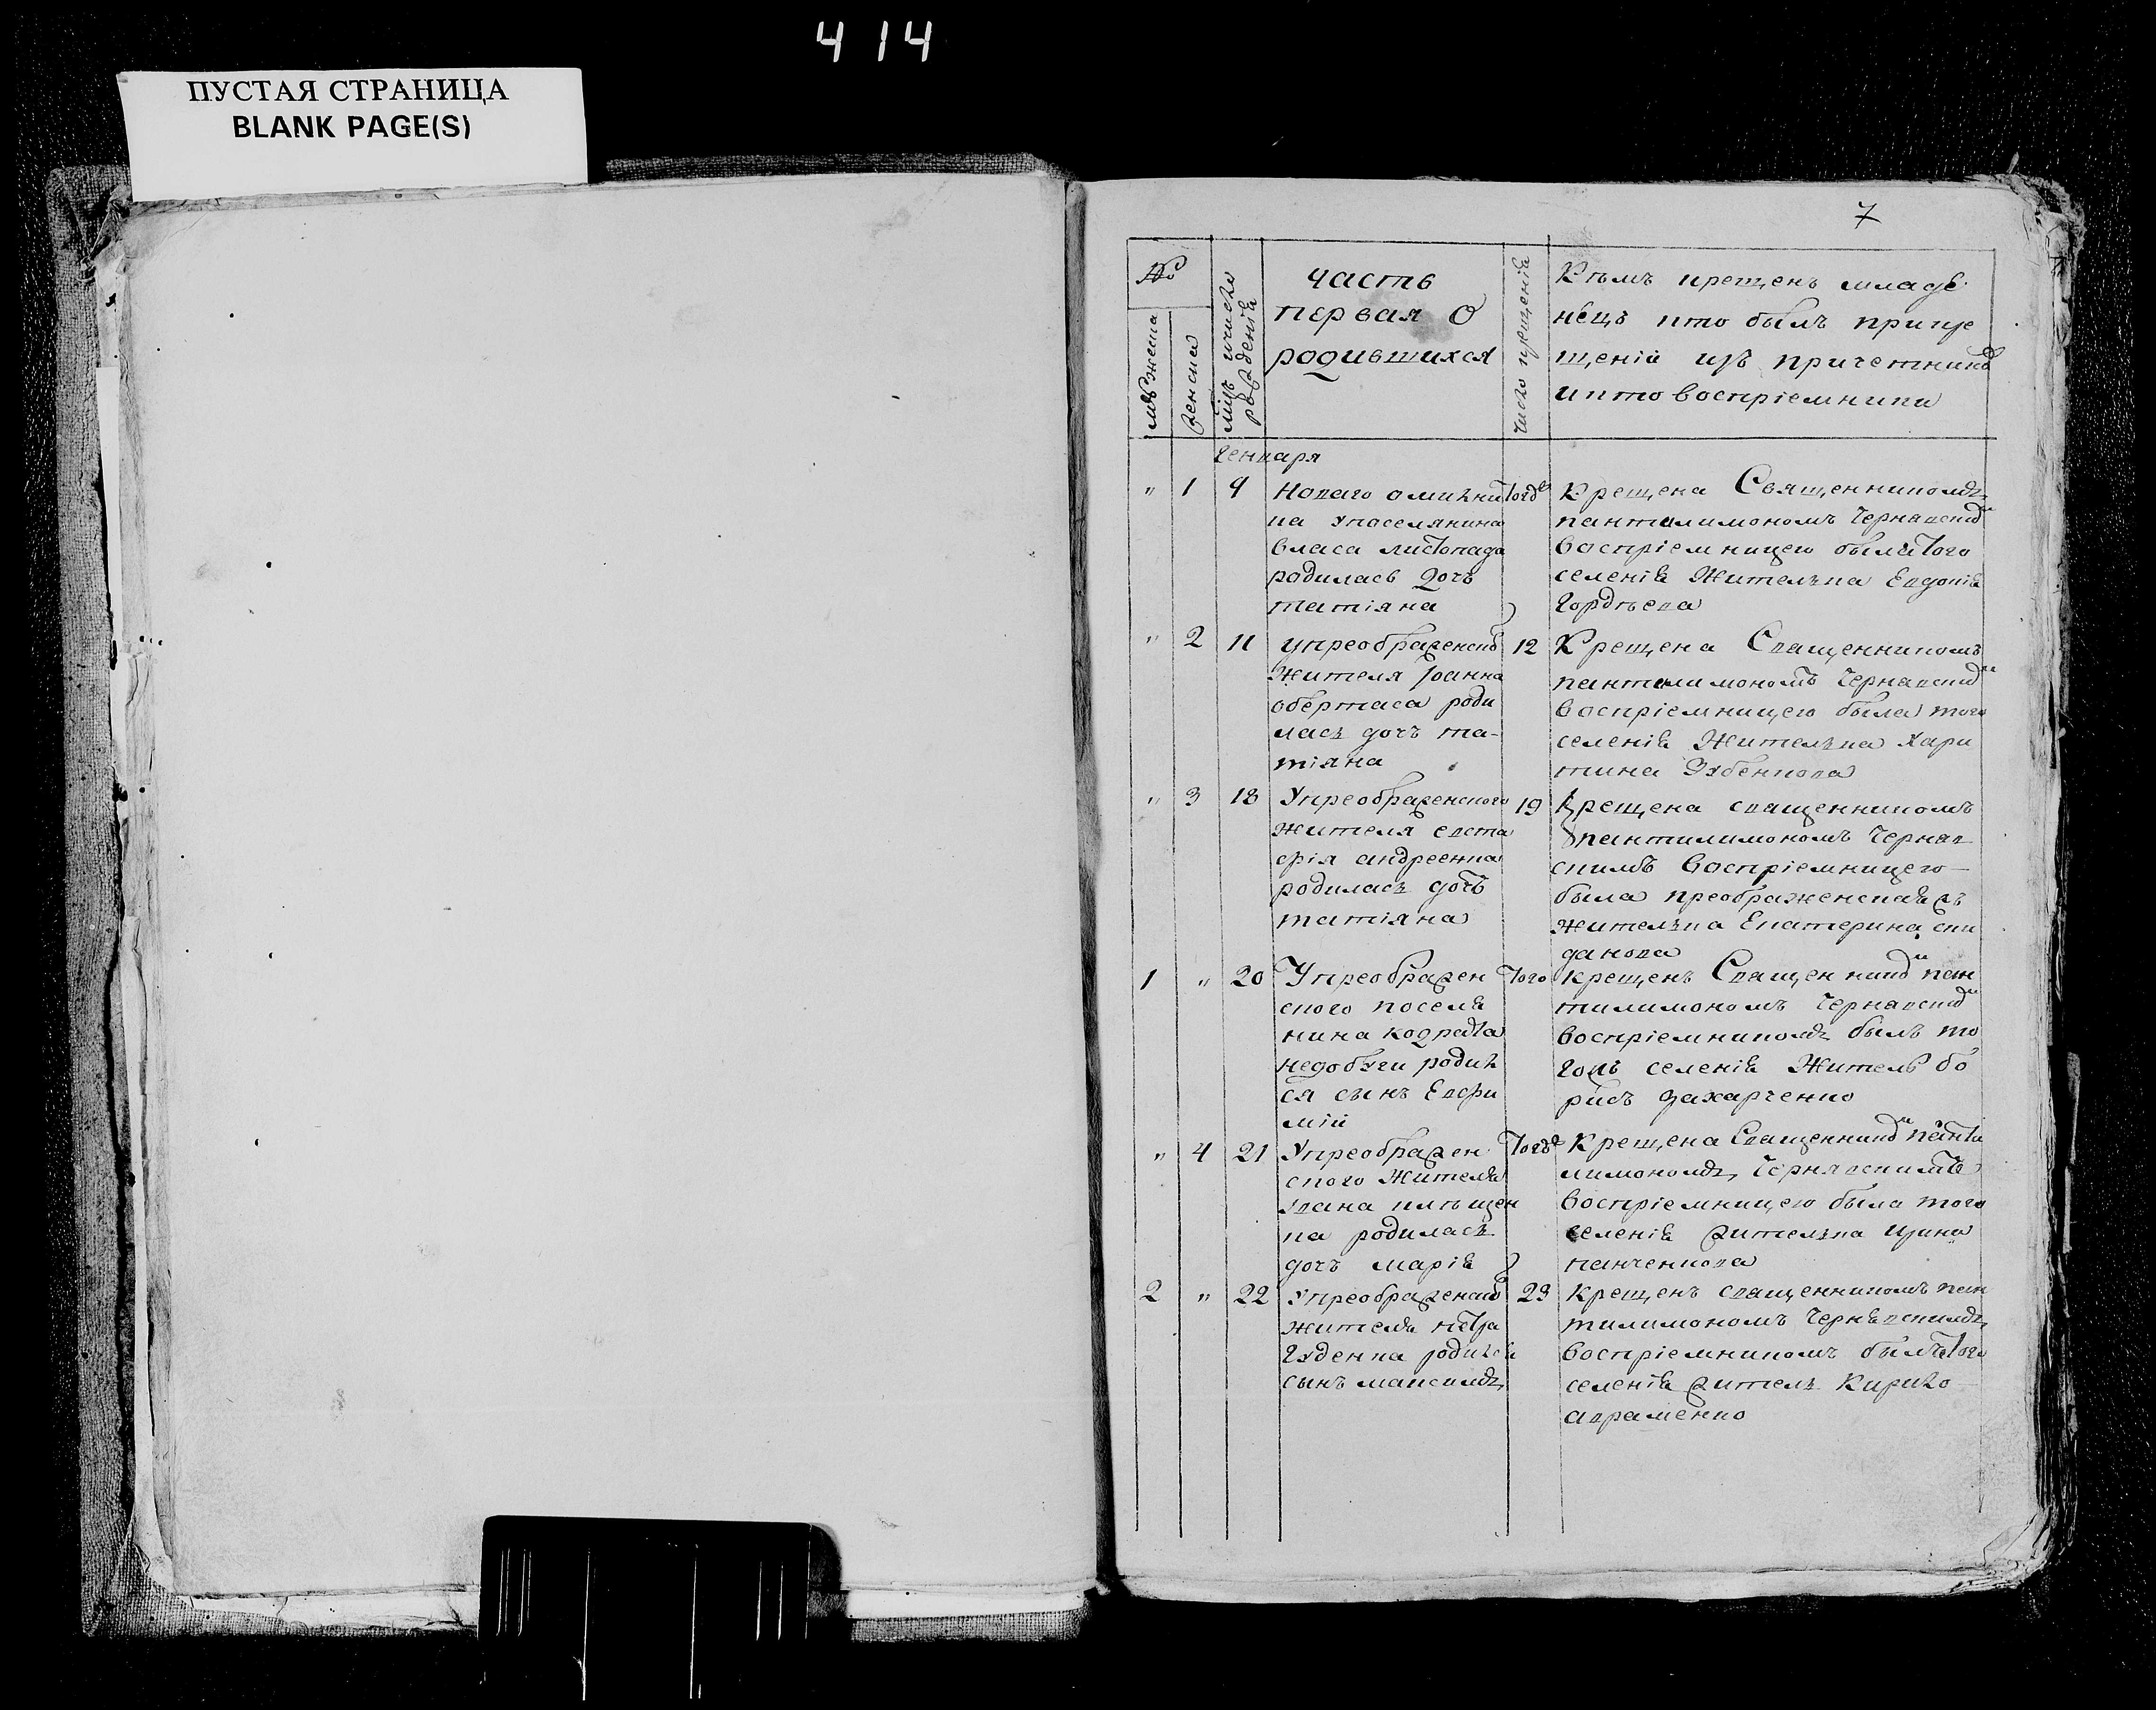 4 14
ПУСТАЯ СТРАНИЦА
BLANK PAGE(S)
7
№
мужеска
женска
число рожденія
часть
первая О
родившихся
число крещенія
Кѣмъ крещенъ младе
нецъ кто былъ прикре
щеніи изъ причетник
икто воспріемники
Генваря
" 1 9
на упоселянина
власа листопада
родилась дочь
татіяна
тогда
Крещена Священникомъ
пантилимономъ Чернавским
воспріемницею была того
селенія Жителька Евдокія
Гордѣева
" 2 11
упреображенск
жителя Іоанна
обертаса роди
лась дочь та-
тіяна
12
Крещена Священникомъ
пантилимономъ Чернавским
воспріемницею была того
селенія Жителька Хари
тина
" 3 18
Упреображенского
жителя евста
фія андреенка
родилась дочь
татіяна
19
Крещена священникомъ
пантилимономъ Чернав
скимъ воспріемницею
была преображенская
жителька Екатерина
данова
1 " 20
Упреображен
ского поселя
нина кодрата
недобуги родил
ся сынъ Евфи
мій
того
крещенъ Священником пан
тилимономъ Чернавским
воспріемникомъ былъ то
гожъ селенія Житель бо
рисъ захарченко
" 4 21
Упреображен
ского Жителя
Ивана клѣщен
ка родилась
дочь марія
тогда
Крещена Священником панти
лимономъ Чернявскимъ
воспріемницею была того
селенія жителька Ирина
панченкова
2 " 22
Упреображенск
жителя петра
Гуденка родился
сынъ максимъ
23
Крещенъ священникомъ пан
тилимономъ Чернявскимъ
воспріемникомъ былъ того
селенія житель Кирило
авраменко